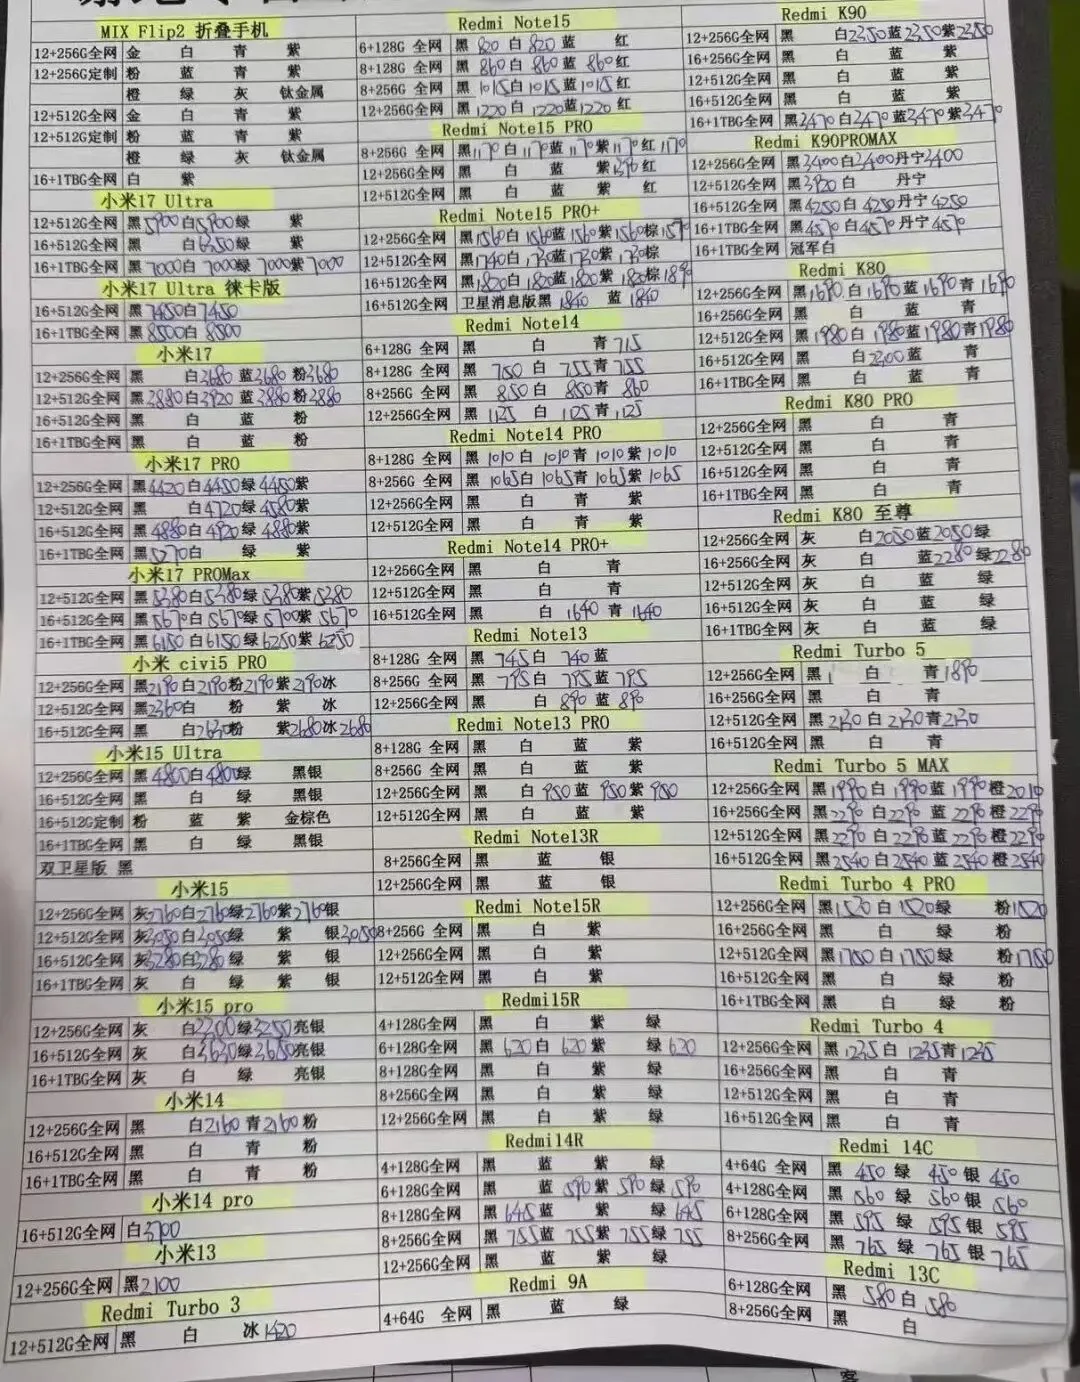 MIX Flip2 折叠手机
12+256G全网 金 白 青 紫
12+256G定制 粉 蓝 青 紫
橙 绿 灰 钛金属
12+512G全网 金 白 青 紫
12+512G定制 粉 蓝 青 紫
橙 绿 灰 钛金属
16+1TBG全网 白 紫
小米17 Ultra
12+512G全网 黑5900白5900绿 紫
16+512G全网 黑 白6350绿 紫
16+1TBG全网 黑7000白7000绿7000紫7000
小米17 Ultra 徕卡版
16+512G全网 黑7450白7450
16+1TBG全网 黑8500白8500
小米17
12+256G全网 黑 白3680蓝3680粉3680
12+512G全网 黑3880白3920蓝3880粉3880
16+512G全网 黑 白 蓝 粉
16+1TBG全网 黑 白 蓝 粉
小米17 PRO
12+256G全网 黑4420白4450绿4450紫
12+512G全网 黑 白4720绿4580紫
16+512G全网 黑4880白4920绿4880紫
16+1TBG全网 黑5270白 绿 紫
小米17 PROMax
12+512G全网 黑5380白5380绿5380紫5380
16+512G全网 黑5670白5670绿5700紫5670
16+1TBG全网 黑6150白6150绿6250紫6250
小米 civi5 PRO
12+256G全网 黑2190白2190粉2190紫2190冰
12+512G全网 黑2360白 粉 紫 冰
16+512G全网 黑 白2630粉 紫2680冰2680
小米15 Ultra
12+256G全网 黑4800白4800绿 黑银
16+512G全网 黑 白 绿 黑银
16+512G定制 粉 蓝 紫 金棕色
16+1TBG全网 黑 白 绿 黑银
双卫星版 黑
小米15
12+256G全网 灰2760白2760绿2760紫2760银
12+512G全网 灰3050白3050绿 紫 银3050
16+512G全网 灰3280白3280绿 紫 银
16+1TBG全网 灰 白 绿 紫 银
小米15 pro
12+256G全网 灰 白3200绿3250亮银
16+512G全网 灰 白3630绿3650亮银
16+1TBG全网 灰 白 绿 亮银
小米14
12+256G全网 黑 白2160青2160粉
16+512G全网 黑 白 青 粉
16+1TBG全网 黑 白 青 粉
小米14 pro
16+512G全网 白3700
小米13
12+256G全网 黑2100
Redmi Turbo 3
12+512G全网 黑 白 冰1420
Redmi Note15
6+128G 全网 黑820白820蓝 红
8+128G 全网 黑860白860蓝860红
8+256G 全网 黑1015白1015蓝1015红
12+256G全网 黑1220白1220蓝1220红
Redmi Note15 PRO
8+256G 全网 黑1170白1170蓝1170紫1170红1170
12+256G全网 黑 白 蓝 紫1390红
12+512G全网 黑 白 蓝 紫 红
Redmi Note15 PRO+
12+256G全网 黑1560白1560蓝1560紫1560棕1570
12+512G全网 黑1740白1730蓝1730紫1730棕
16+512G全网 黑1820白1820蓝1820紫1820棕1890
16+512G全网 卫星消息版黑1840 蓝1840
Redmi Note14
6+128G 全网 黑 白 青715
8+128G 全网 黑750白755青755
8+256G 全网 黑850白850青860
12+256G全网 黑1125白1125青1125
Redmi Note14 PRO
8+128G 全网 黑1010白1010青1010紫1010
8+256G 全网 黑1065白1065青1065紫1065
12+256G全网 黑 白 青 紫
12+512G全网 黑 白 青 紫
Redmi Note14 PRO+
12+256G全网 黑 白 青
12+512G全网 黑 白 青
16+512G全网 黑 白1640青1640
Redmi Note13
8+128G 全网 黑745白740蓝
8+256G 全网 黑795白795蓝795
12+256G全网 黑 白890蓝890
Redmi Note13 PRO
8+128G 全网 黑 白 蓝 紫
8+256G 全网 黑 白 蓝 紫
12+256G全网 黑 白950蓝950紫950
12+512G全网 黑 白 蓝 紫
Redmi Note13R
8+256G全网 黑 蓝 银
12+256G全网 黑 蓝 银
Redmi Note15R
8+256G 全网 黑 白 紫
12+256G全网 黑 白 紫
12+512G全网 黑 白 紫
Redmi15R
4+128G全网 黑 白 紫 绿
6+128G全网 黑620白620紫 绿620
8+128G全网 黑 白 紫 绿
8+256G全网 黑 白 紫 绿
12+256G全网 黑 白 紫 绿
Redmi14R
4+128G全网 黑 蓝 紫 绿
6+128G全网 黑 蓝590紫590绿590
8+128G全网 黑645蓝 紫 绿645
8+256G全网 黑755蓝755紫755绿755
12+256G全网 黑 蓝 紫 绿
Redmi 9A
4+64G 全网 黑 蓝 绿
Redmi K90
12+256G全网 黑 白2350蓝2350紫2350
16+256G全网 黑 白 蓝 紫
12+512G全网 黑 白 蓝 紫
16+512G全网 黑 白 蓝 紫
16+1TBG全网 黑3470白3470蓝3470紫3470
Redmi K90PROMAX
12+256G全网 黑3400白3400丹宁3400
12+512G全网 黑3920白 丹宁
16+512G全网 黑4250白4250丹宁4250
16+1TBG全网 黑4570白4570丹宁4570
16+1TBG全网 冠军白
Redmi K80
12+256G全网 黑1690白1690蓝1690青1690
16+256G全网 黑 白 蓝 青
12+512G全网 黑1980白1980蓝1980青1980
16+512G全网 黑 白2200蓝 青
16+1TBG全网 黑 白 蓝 青
Redmi K80 PRO
12+256G全网 黑 白 青
12+512G全网 黑 白 青
16+512G全网 黑 白 青
16+1TBG全网 黑 白 青
Redmi K80 至尊
12+256G全网 灰 白2050蓝2050绿
16+256G全网 灰 白 蓝2280绿2280
12+512G全网 灰 白 蓝 绿
16+512G全网 灰 白 蓝 绿
16+1TBG全网 灰 白 蓝 绿
Redmi Turbo 5
12+256G全网 黑 白 青1890
16+256G全网 黑 白 青
12+512G全网 黑2130白2130青2130
16+512G全网 黑 白 青
Redmi Turbo 5 MAX
12+256G全网 黑1990白1990蓝1990橙2010
16+256G全网 黑2290白2290蓝2290橙2290
12+512G全网 黑2290白2290蓝2290橙2290
16+512G全网 黑2540白2540蓝2540橙2540
Redmi Turbo 4 PRO
12+256G全网 黑1520白1520绿 粉1520
16+256G全网 黑 白 绿 粉
12+512G全网 黑1750白1750绿 粉1750
16+512G全网 黑 白 绿 粉
16+1TBG全网 黑 白 绿 粉
Redmi Turbo 4
12+256G全网 黑1235白1235青1235
16+256G全网 黑 白 青
12+512G全网 黑 白 青
16+512G全网 黑 白 青
Redmi 14C
4+64G 全网 黑450绿450银450
4+128G全网 黑560绿560银560
6+128G全网 黑595绿595银595
8+256G全网 黑765绿765银765
Redmi 13C
6+128G全网 黑580白580
8+256G全网 黑 白